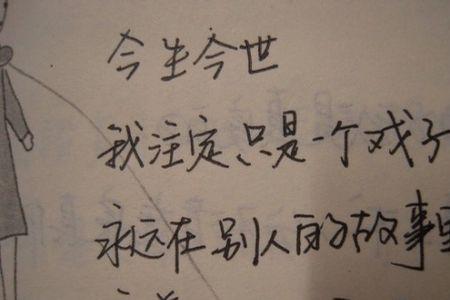 今生今世
我注定只是一个戏子
永远在别人的故事里